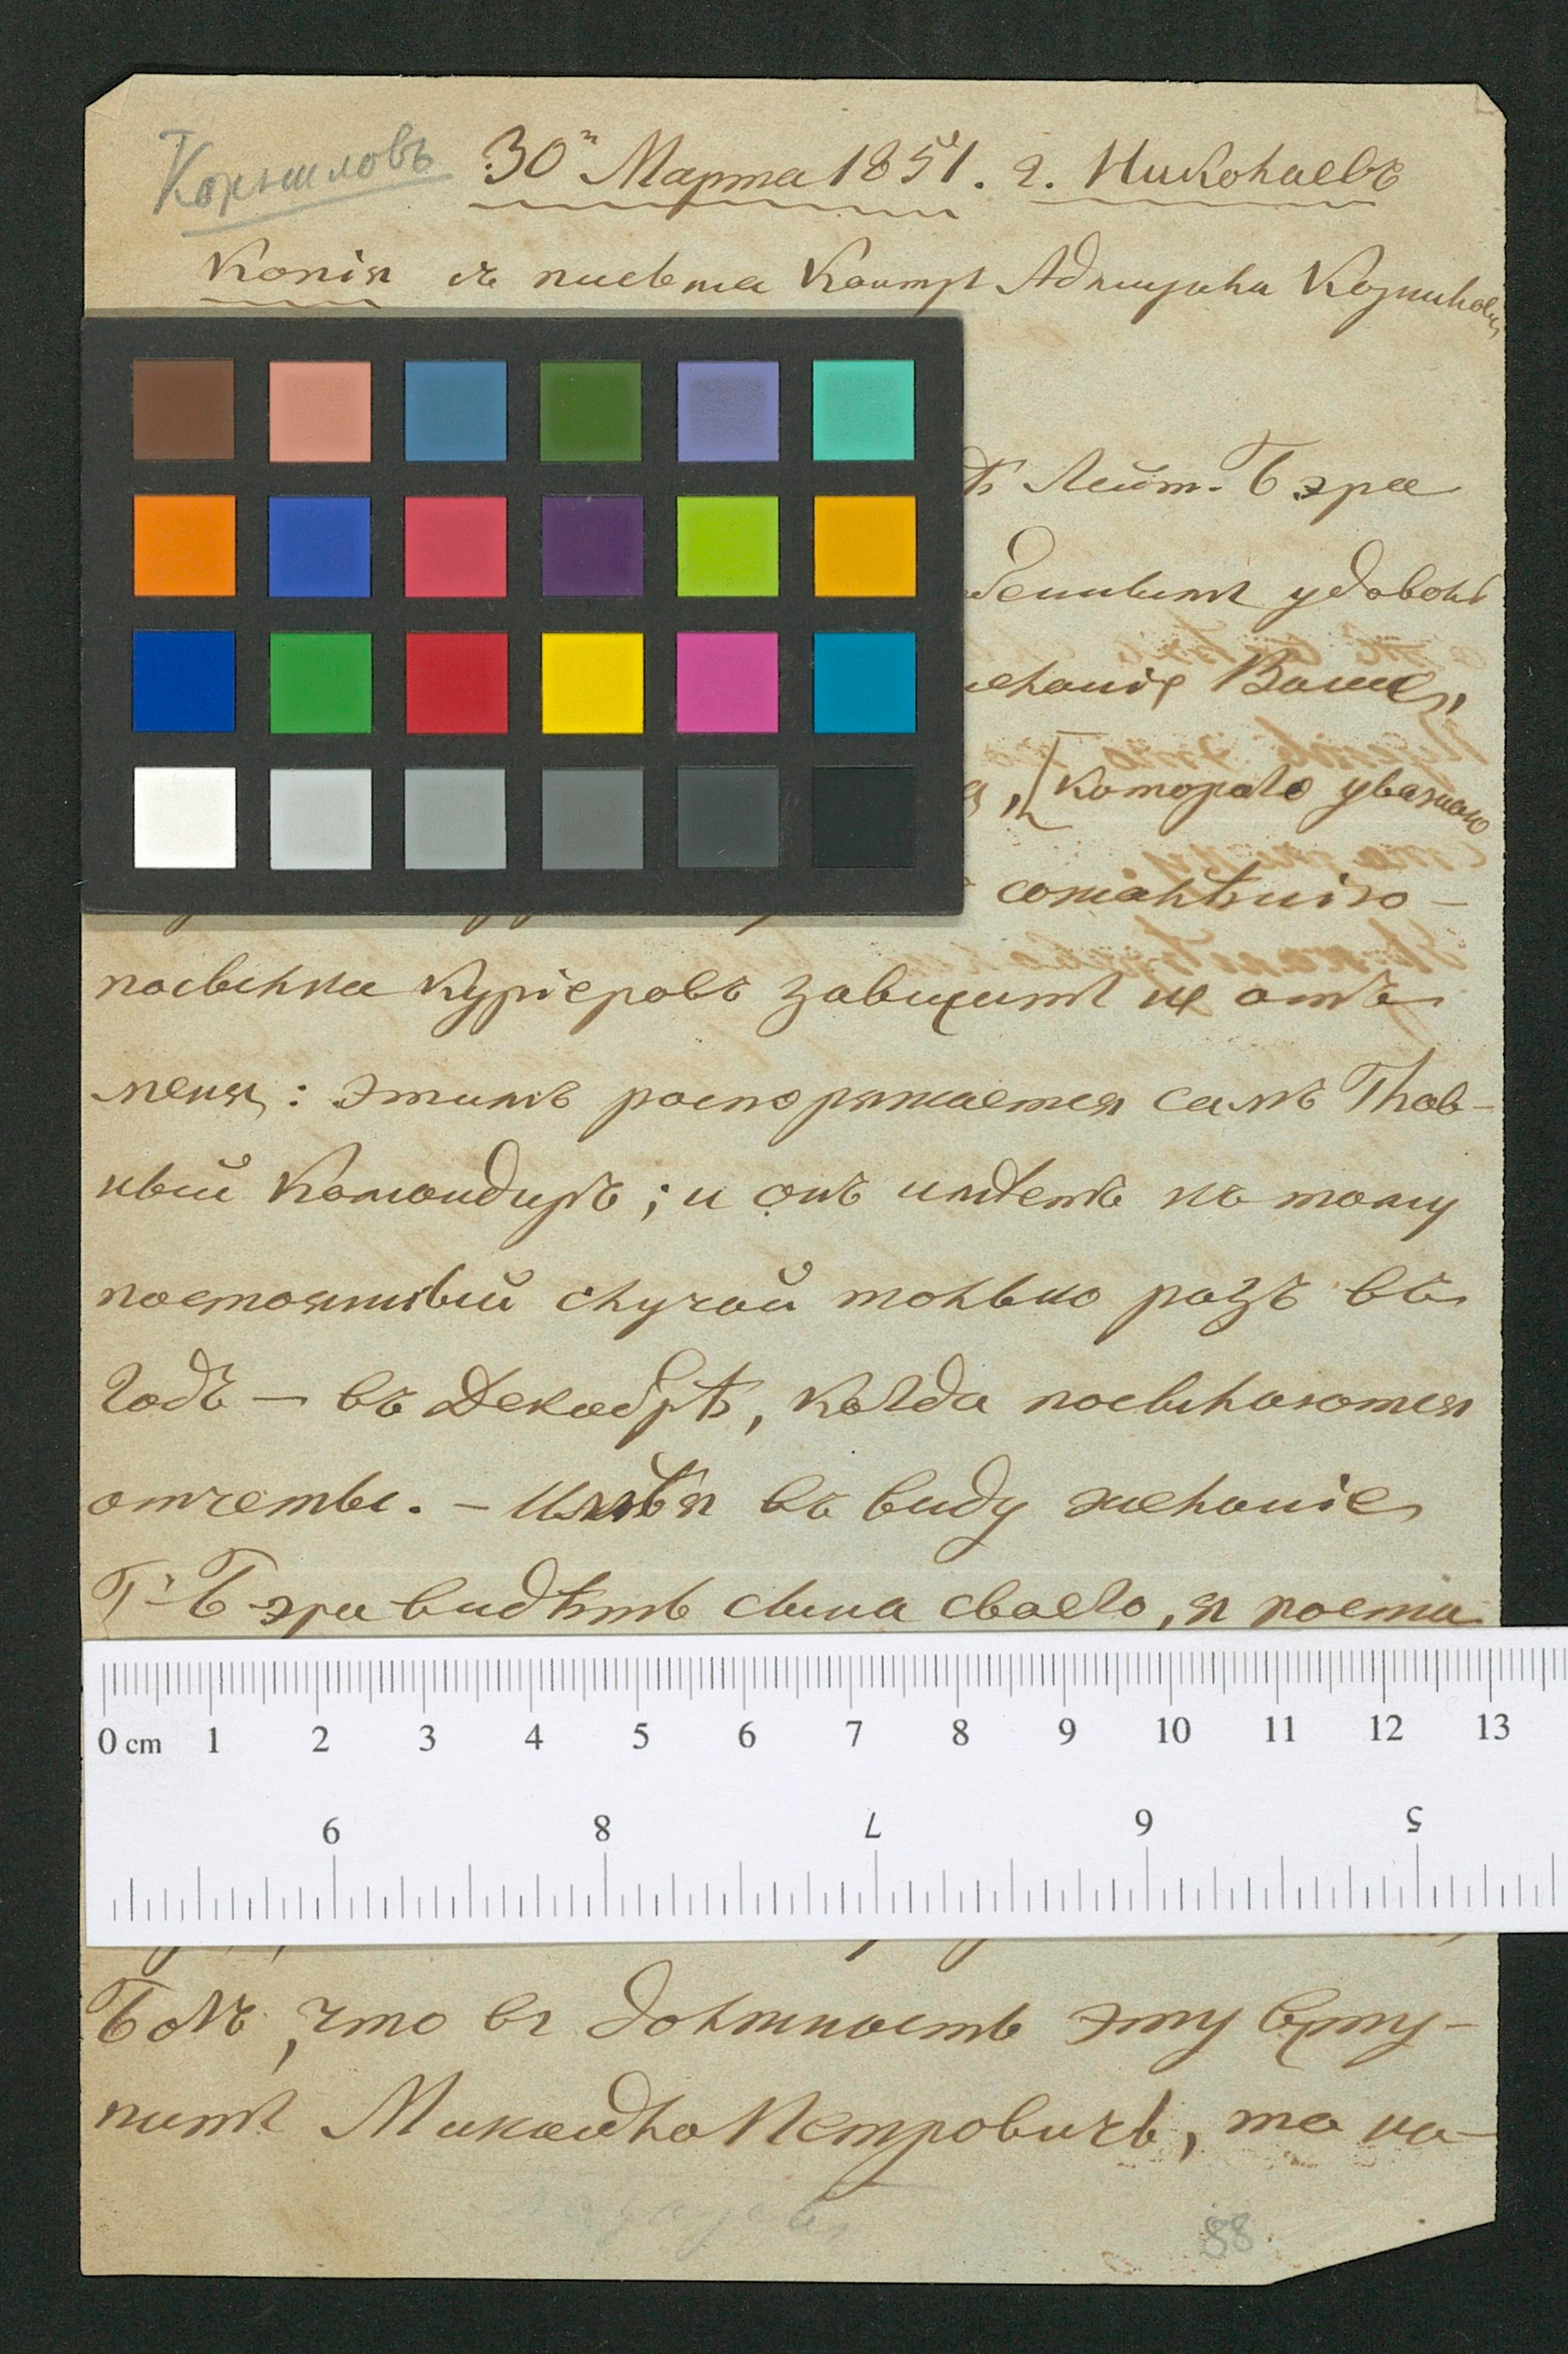 Корниловъ 30го Марта 1851. г. Николаевъ
Копія съ письма Контръ Адмирала Корнилова
Лейт. Бэра
удовол
Ваше,
[которого уважаю
сожалѣнію
посылка Курiеровъ зависитъ не отъ
меня: этимъ распоряжается самъ Глав-
ный Командиръ; и онъ имѣетъ къ тому
постоянный случай только разъ въ
годъ — въ Декабрѣ, когда посылаются
отчеты. — Имѣя въ виду желаніе
Г. Бэра видѣть сына своего, я поста
0 cm 1 2 3 4 5 6 7 8 9 10 11 12 13
9 8 7 6 5
Богъ, что въ должность эту всту-
питъ Петровичь, то на-
88